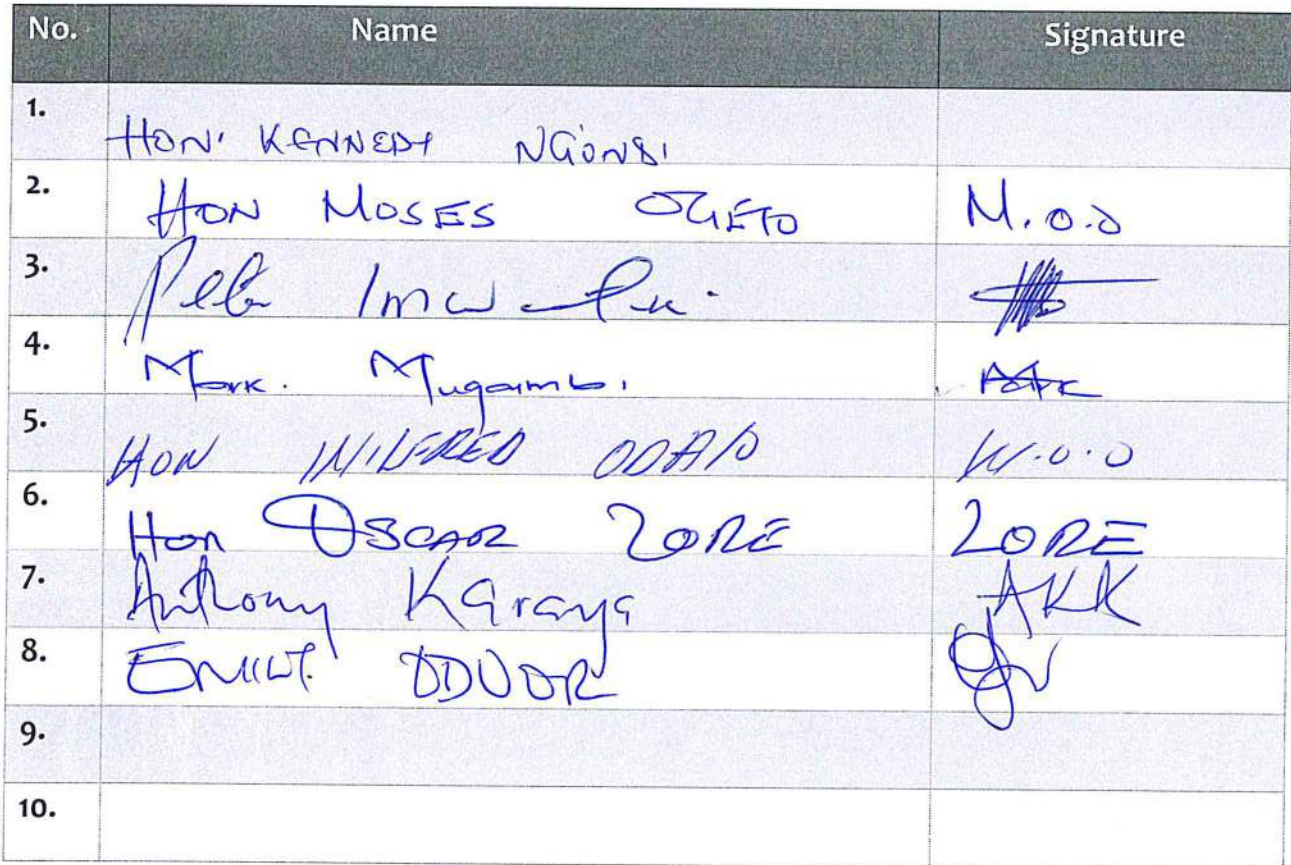 No. Name Signature
1. HON' KENNEDY NGONDI
2. HON MOSES OGETO M.O.O
3. Peter Imwatok
4. Mark. Mugambi Mark
5. HON WILFRED ODALO W.O.O
6. Hon OSCAR LORE LORE
7. Anthony Karanja AKK
8. ODUOR
9.
10.